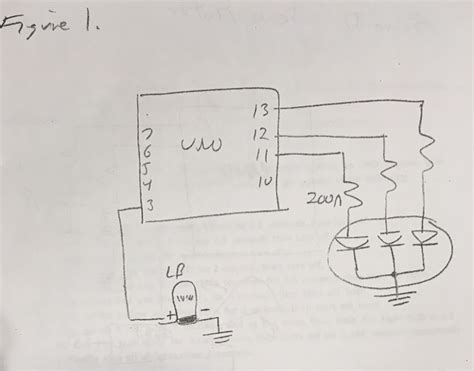 Figure 1.
13
7
12
6
UNO
11
5
4
10
3
200Ω
LB
+
-